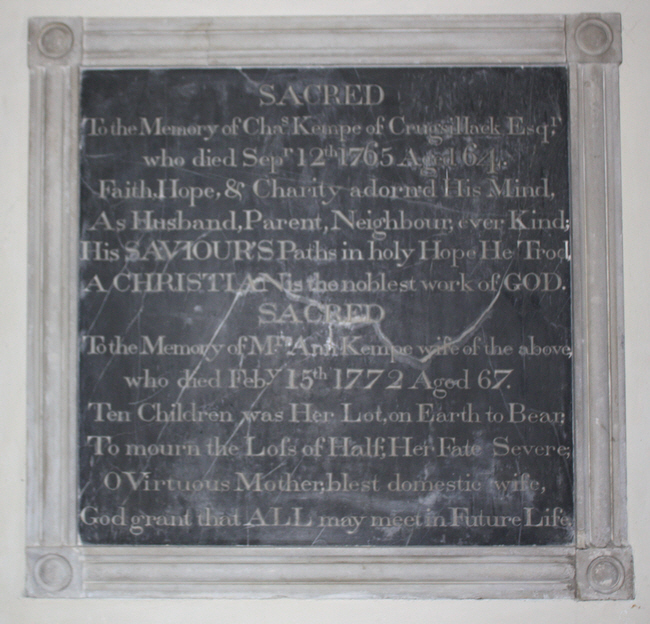 SACRED
To the Memory of Chaˢ. Kempe of Crugsillack Esqʳ.
who died Sepʳ 12ᵗʰ 1765 Aged 64.
Faith, Hope, & Charity adorn'd His Mind,
As Husband, Parent, Neighbour, ever Kind;
His SAVIOUR'S Paths in holy Hope He Trod,
A CHRISTIAN is the noblest work of GOD.
SACRED
To the Memory of Mʳˢ Ann Kempe wife of the above,
who died Febʸ 15ᵗʰ 1772 Aged 67.
Ten Children was Her Lot, on Earth to Bear,
To mourn the Loſs of Half, Her Fate Severe;
O Virtuous Mother, blest domestic wife,
God grant that ALL may meet in Future Life